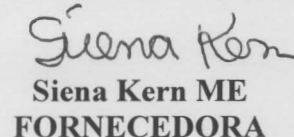 Siena Kern
Siena Kern ME
FORNECEDORA